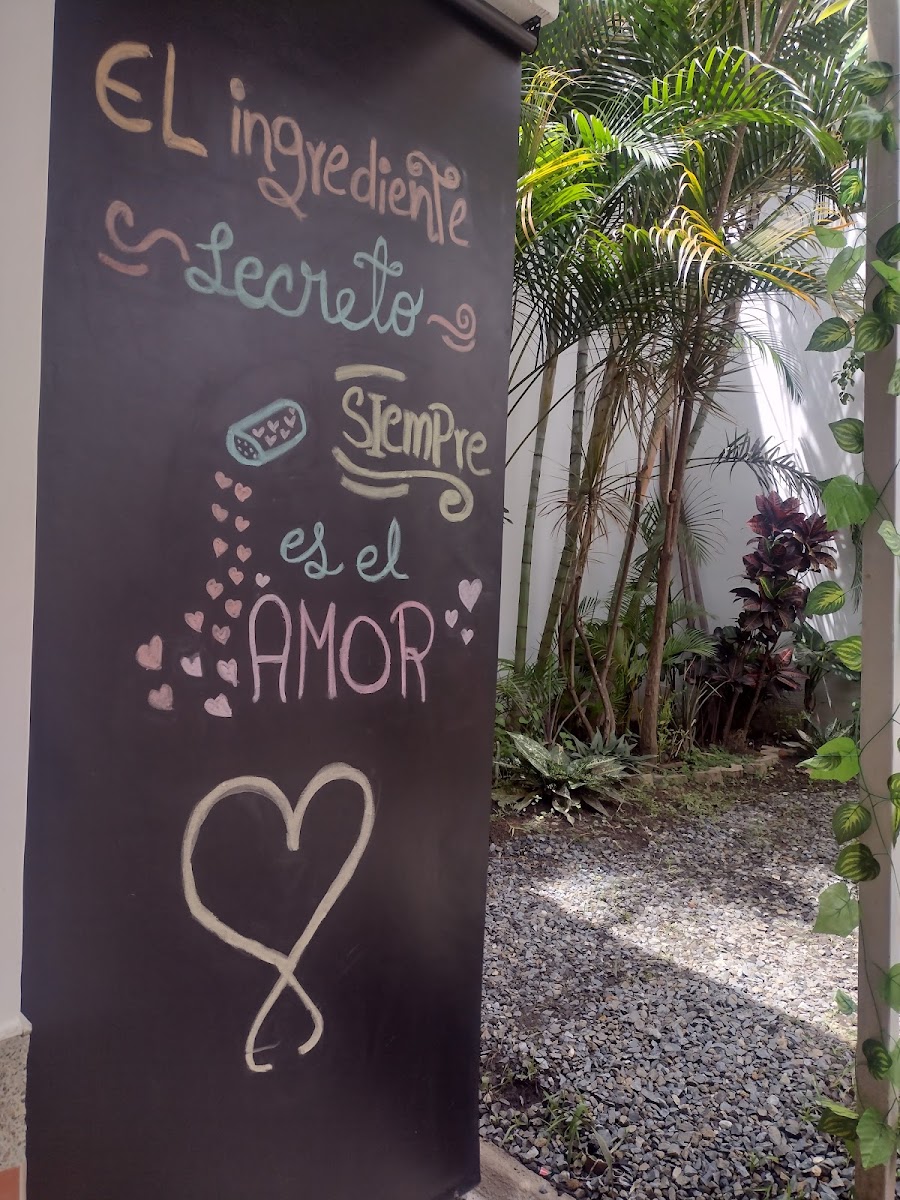 EL ingrediente
Secreto
SIemPre
es el
AMOR